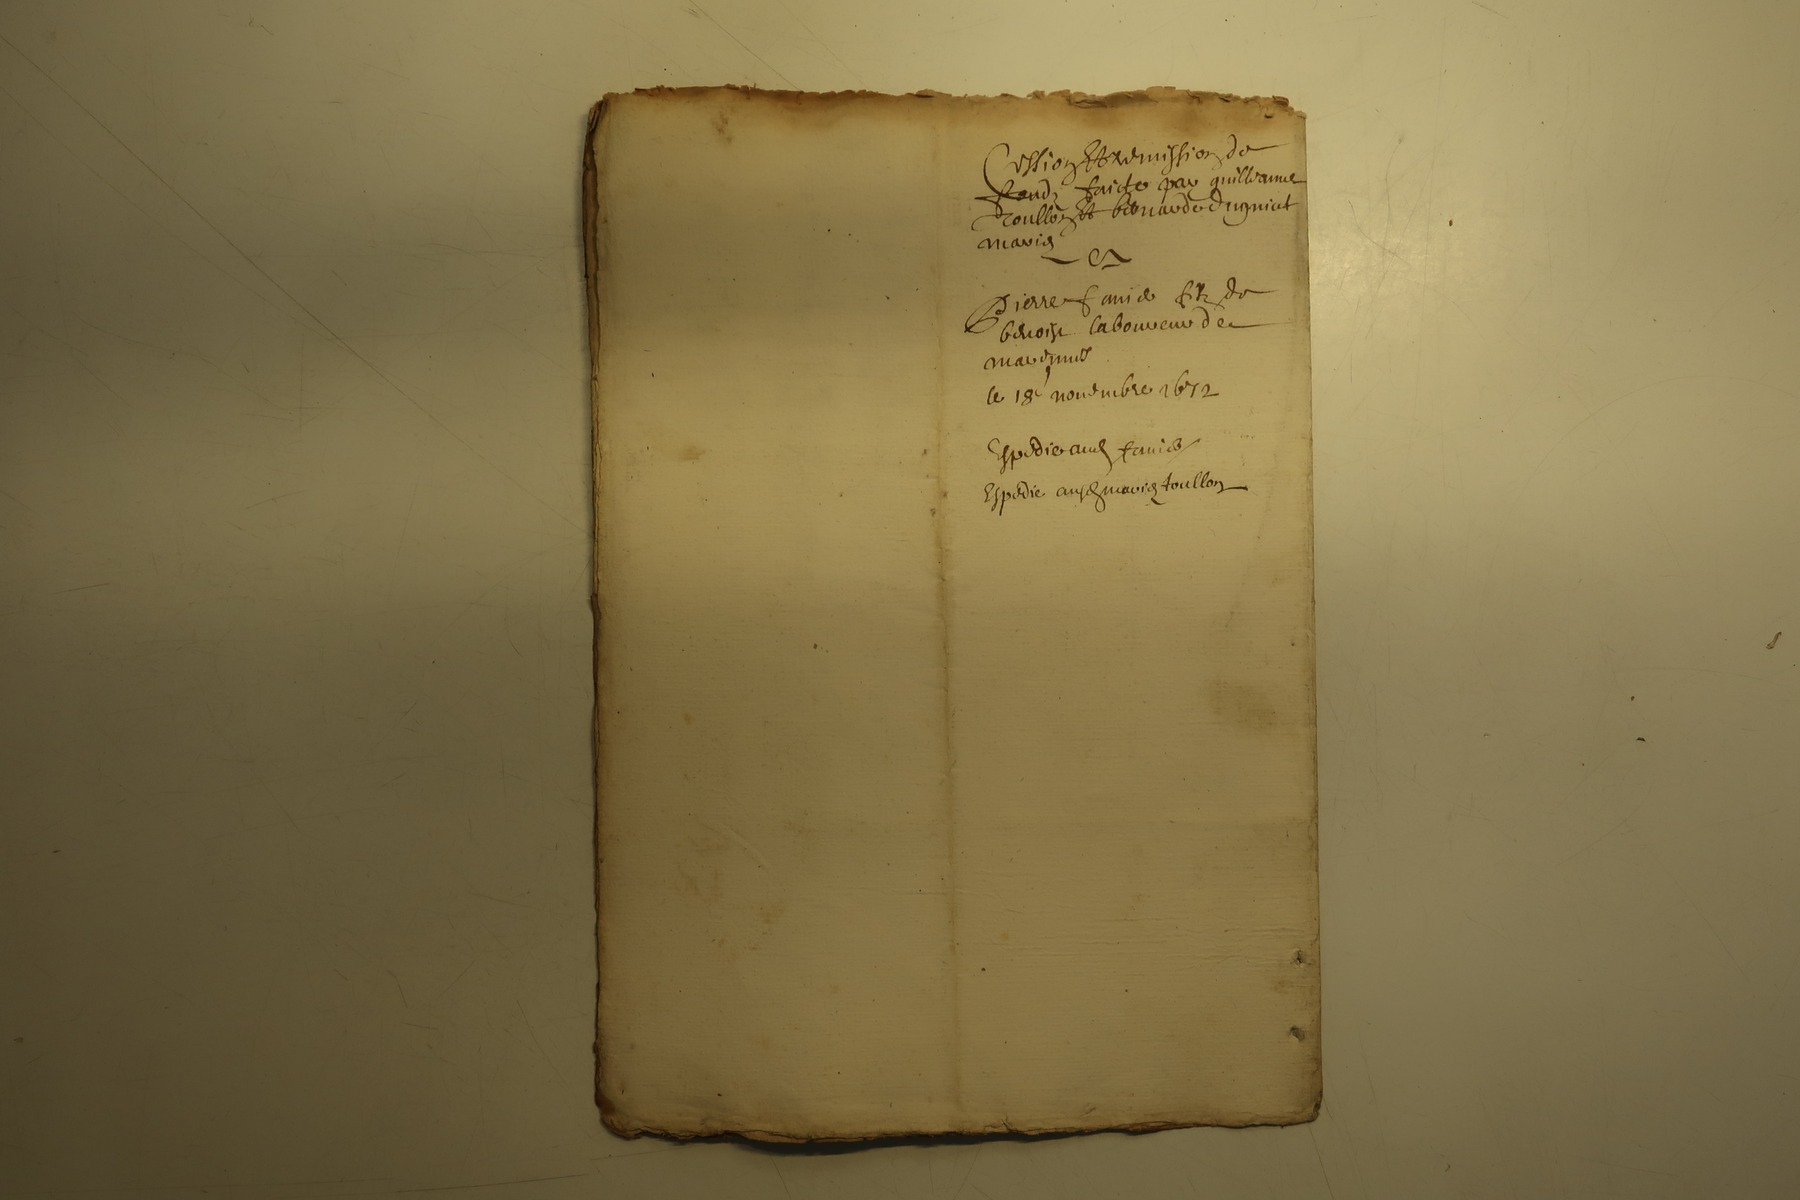 Cession et remission de
fondz faicte par guillaume
Toullon et benarde Dugniat
mariez
Et
Pierre favier filz de
benoist laboureur de
marennes
le 18e novembre 1672
Expedie aud favier
Expedie ausd mariez toullon